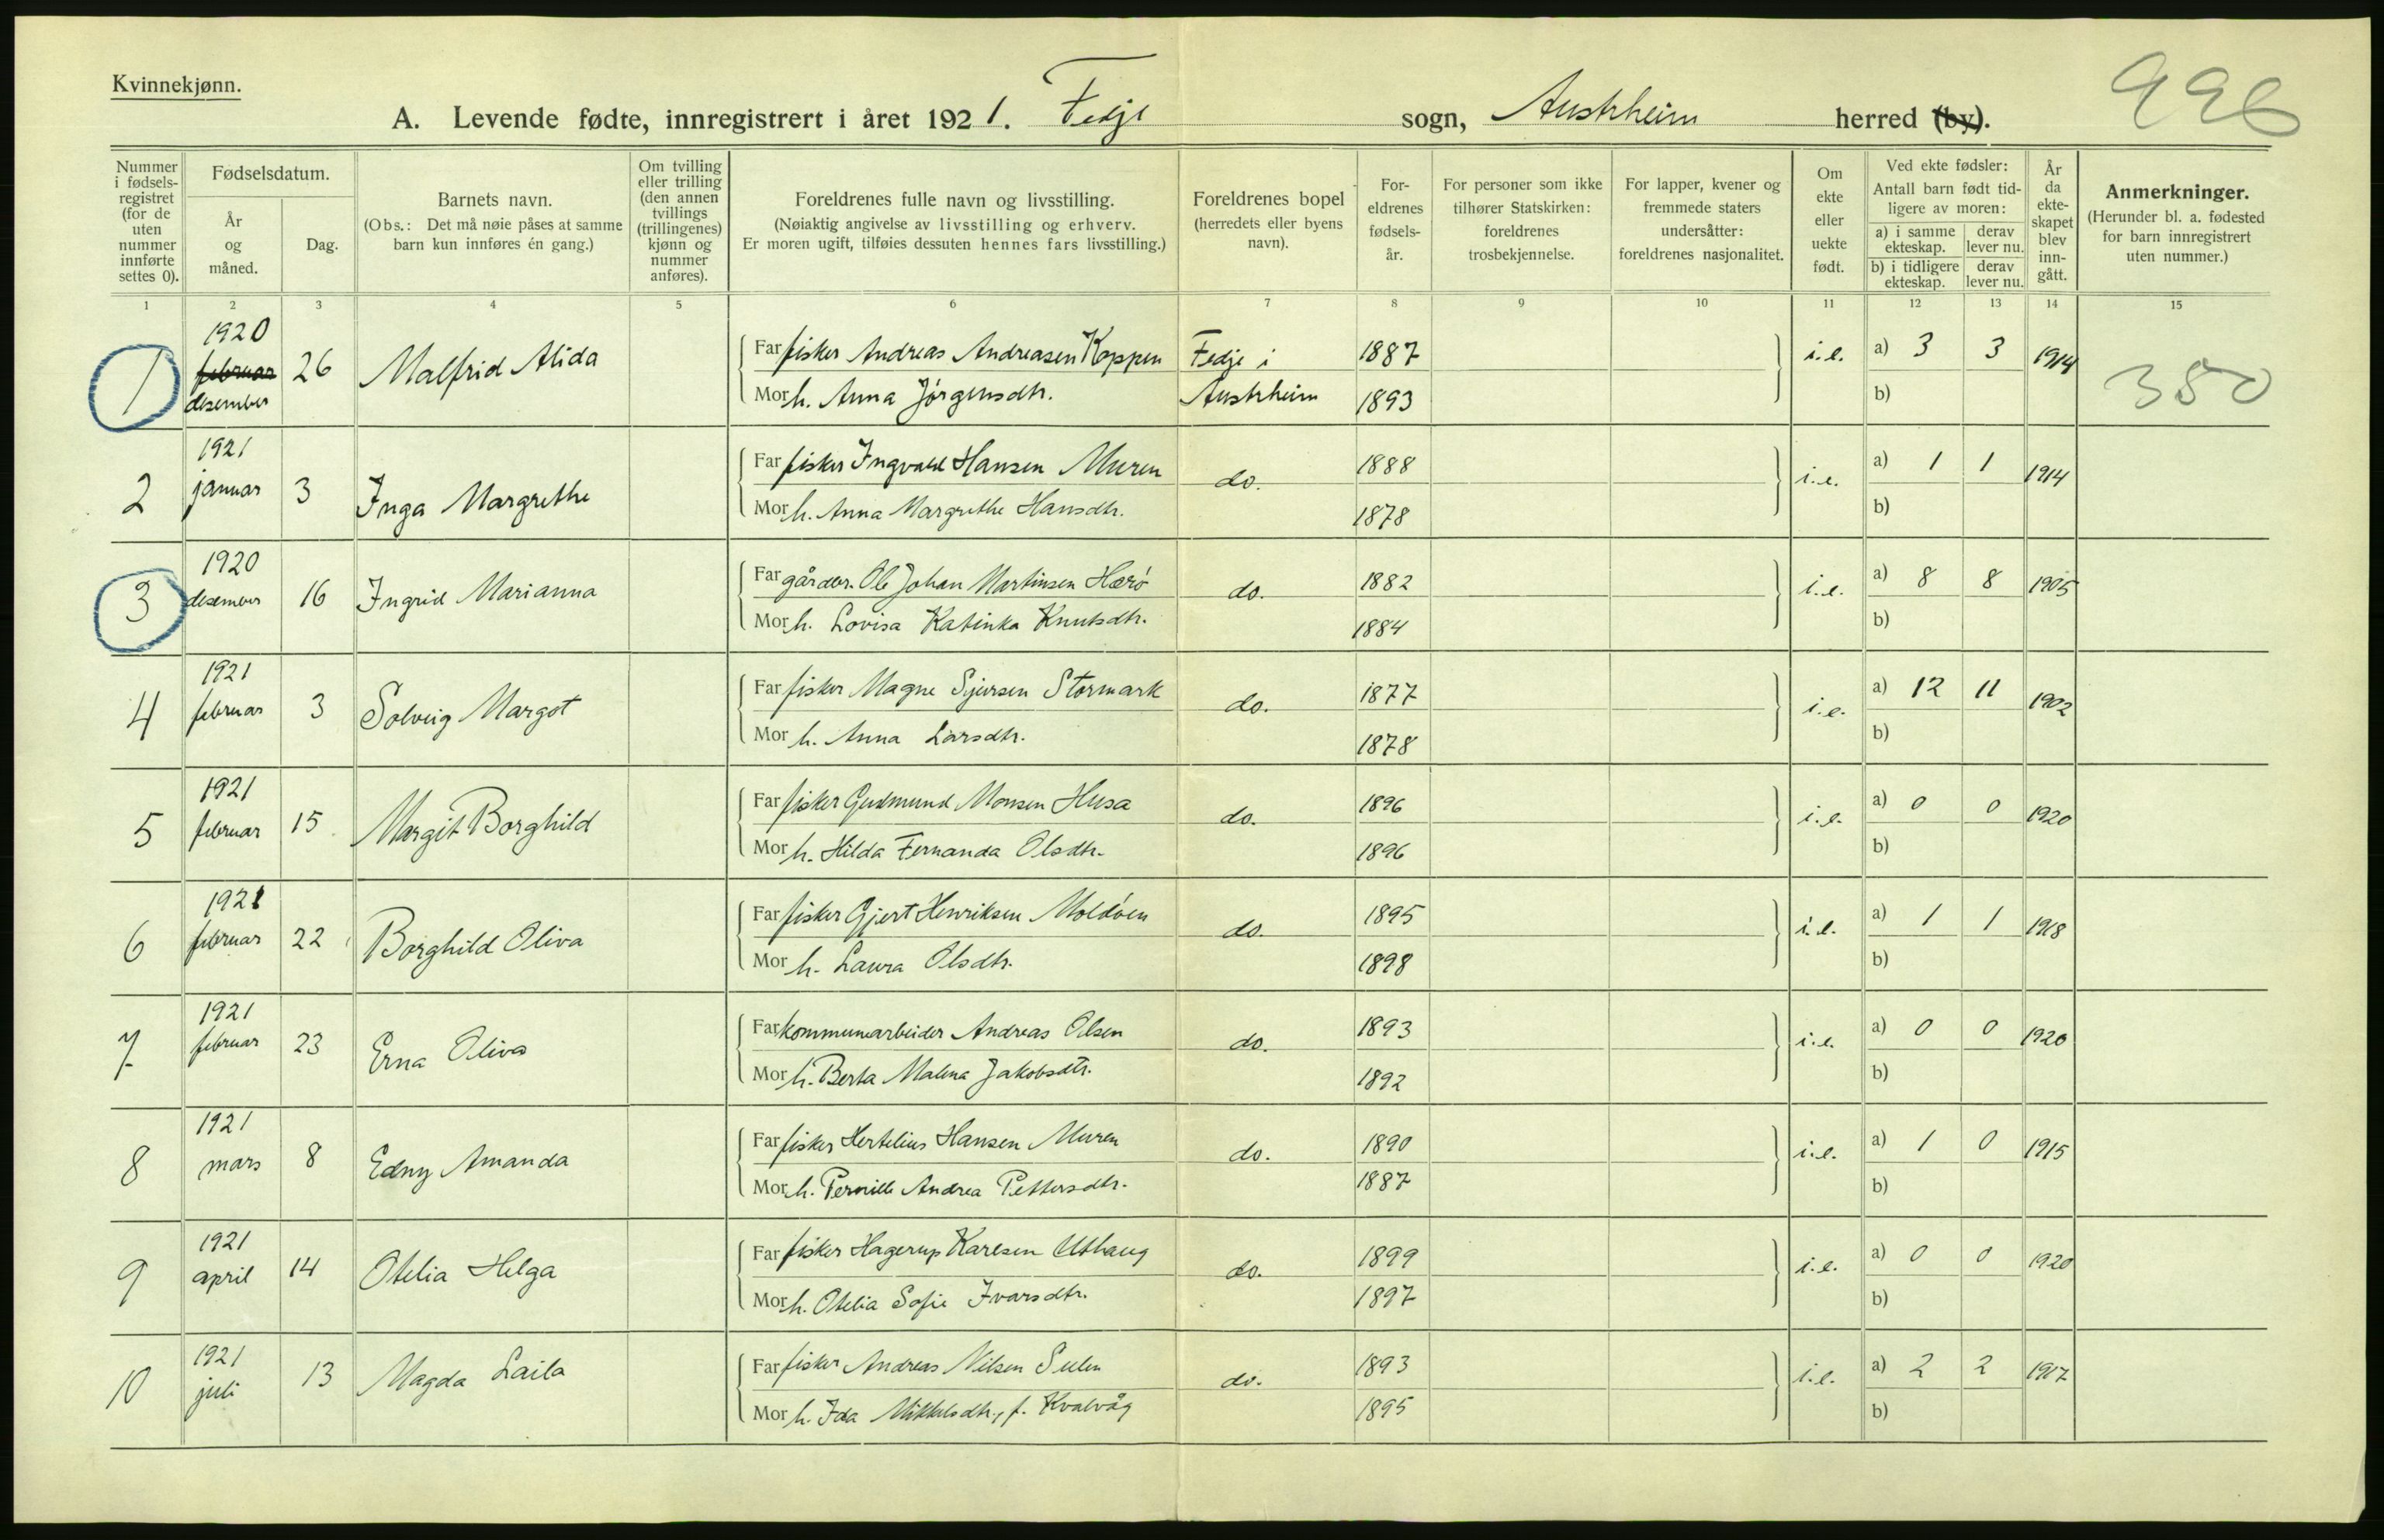 Kvinnekjønn.
996
A. Levende fødte, innregistrert i året 1921. Fedje sogn, Austrheim herred (by).
Nummer i fødsels-registret (for de uten nummer innførte settes 0).
Fødselsdatum.
År og måned.
Dag.
Barnets navn.
(Obs.: Det må nøie påses at samme barn kun innføres én gang.)
Om tvilling eller trilling (den annen tvillings (trillingenes) kjønn og nummer anføres).
Foreldrenes fulle navn og livsstilling.
(Nøiaktig angivelse av livsstilling og erhverv.
Er moren ugift, tilføies dessuten hennes fars livsstilling.)
Foreldrenes bopel
(herredets eller byens navn).
For-eldrenes fødsels-år.
For personer som ikke tilhører Statskirken: foreldrenes trosbekjennelse.
For lapper, kvener og fremmede staters undersåtter: foreldrenes nasjonalitet.
Om ekte eller uekte født.
Ved ekte fødsler:
Antall barn født tid-ligere av moren:
a) i samme ekteskap.
derav lever nu.
b) i tidligere ekteskap.
derav lever nu.
År da ekte-skapet blev inn-gått.
Anmerkninger.
(Herunder bl. a. fødested for barn innregistrert uten nummer.)
1 2 3 4 5 6 7 8 9 10 11 12 13 14 15
1 1920 februar desember 26 Malfrid Alida
Far fisker Andreas Andreasen Koppen Fedje i 1887 i.e. a) 3 3 1914
Mor h. Anna Jørgensdtr. Austrheim 1893 b)
350
2 1921 januar 3 Inga Margrethe
Far fisker Ingvald Hansen Muren do. 1888 i.e. a) 1 1 1914
Mor h. Anna Margrethe Hansdtr. 1878 b)
3 1920 desember 16 Ingrid Marianna
Far gårdbr. Ole Johan Martinsen Hærø do. 1882 i.e. a) 8 8 1905
Mor h. Lovisa Katinka Knutsdtr. 1884 b)
4 1921 februar 3 Solveig Margot
Far fisker Magne Sjursen Stormark do. 1877 i.e. a) 12 11 1902
Mor h. Anna Larsdtr. 1878 b)
5 1921 februar 15 Margit Borghild
Far fisker Gudmund Monsen Husa do. 1896 i.e. a) 0 0 1920
Mor h. Hilda Fernanda Olsdtr. 1896 b)
6 1921 februar 22 Borghild Oliva
Far fisker Gjert Henriksen Moldøen do. 1895 i.e. a) 1 1 1918
Mor h. Laura Olsdtr. 1898 b)
7 1921 februar 23 Erna Oliva
Far kommunearbeider Andreas Olsen do. 1893 i.e. a) 0 0 1920
Mor h. Berta Malena Jakobsdtr. 1892 b)
8 1921 mars 8 Edny Amanda
Far fisker Hertelius Hansen Muren do. 1890 i.e. a) 1 0 1915
Mor h. Pernille Andrea Pettersdtr. 1887 b)
9 1921 april 14 Otelia Helga
Far fisker Hagerup Karlsen Uthaug do. 1899 i.e. a) 0 0 1920
Mor h. Otelia Sofie Ivarsdtr. 1897 b)
10 1921 juli 13 Magda Laila
Far fisker Andreas Nilsen Sulen do. 1893 i.e. a) 2 2 1917
Mor h. Ida Mikkelsdtr., f. Kvalvåg 1895 b)